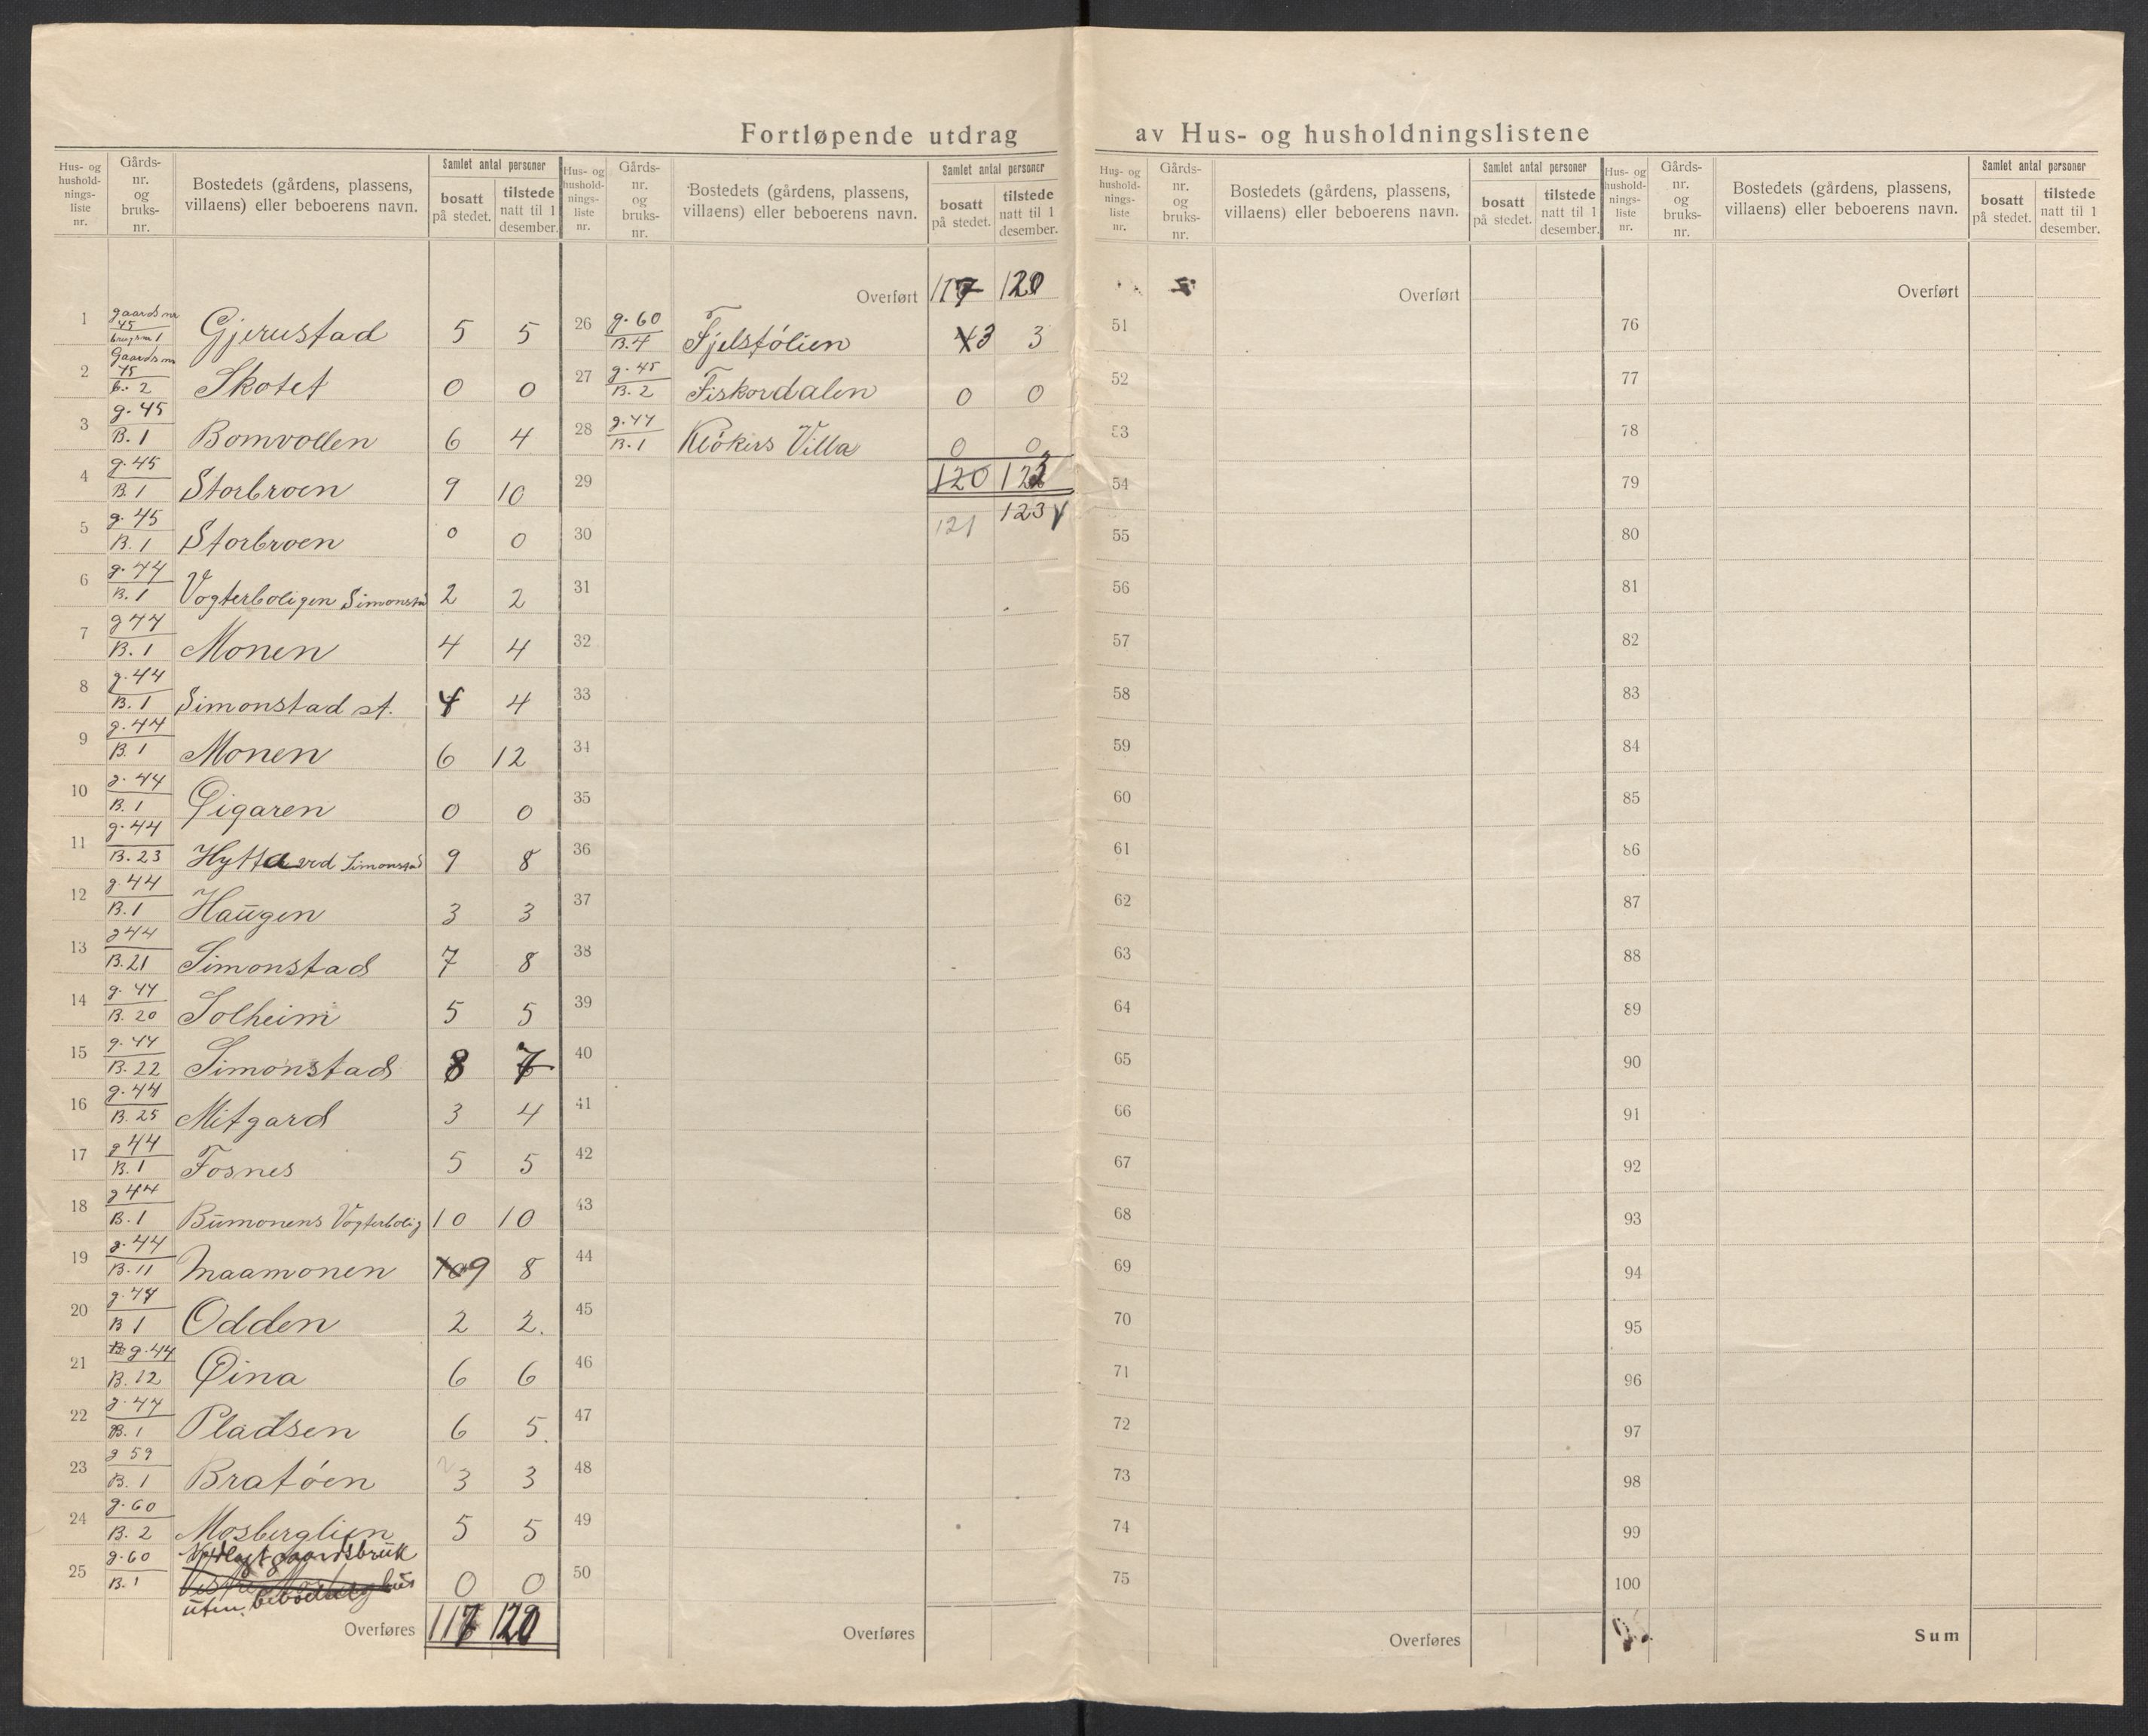 Fortløpende utdrag av Hus- og husholdningslistene
Hus- og hushold-nings-liste nr. | Gårds-nr. og bruks-nr. | Bostedets (gårdens, plassens, villaens) eller beboerens navn. | Samlet antal personer | bosatt på stedet. | tilstede natt til 1 desember.
1 gaards nr 45 brugsnr 1 Gjerustad 5 5
2 Gaards nr 45 b. 2 Skotet 0 0
3 g. 45 B. 1 Bomvollen 6 4
4 g. 45 B. 1 Storbroen 9 10
5 g. 45 B. 1 Storbroen 0 0
6 g. 44 B. 1 Vogterboligen Simonsta 2 2
7 g 44 B. 1 Monen 4 4
8 g. 44 B. 1 Simonstad st. 4 4
9 g. 44 B. 1 Monen 6 12
10 g. 44 B. 1 Øigaren 0 0
11 g. 44 B. 23 Hytta ved Simonstad 9 8
12 g. 44 B. 1 Haugen 3 3
13 g 44 B. 21 Simonstad 7 8
14 g. 44 B. 20 Solheim 5 5
15 g. 44 B. 22 Simonstad 8 7
16 g. 44 B. 25 Mitgard 3 4
17 g 44 B. 1 Fosnes 5 5
18 g 44 B. 1 Bumonens Vogterbolig 10 10
19 g. 44 B. 11 Maamonen 10 9 8
20 g. 44 B 1 Odden 2 2.
21 B g. 44 B. 12 Øina 6 6
22 g. 44 B. 1 Pladsen 6 5.
23 g 59 B. 1 Bratóen 3 3
24 g. 60 B. 2 Mosberglien 5 5
25 g. 60 B. 1 Nedlagt gaardsbruk
uten 0 0
Overføres 117 120
Hus- og hushold-nings-liste nr. | Gårds-nr. og bruks-nr. | Bostedets (gårdens, plassens, villaens) eller beboerens navn. | Samlet antal personer | bosatt på stedet. | tilstede natt til 1 desember.
Overført 117 120
26 g. 60 B. 4 Fjelstólien 4 3 3
27 g. 45 B. 2 Fiskordalen 0 0
28 g. 44 B. 1 Klókers Villa 0 0
29 120 123
30 121 123
31
32
33
34
35
36
37
38
39
40
41
42
43
44
45
46
47
48
49
50
Overføres
Hus- og hushold-nings-liste nr. | Gårds-nr. og bruks-nr. | Bostedets (gårdens, plassens, villaens) eller beboerens navn. | Samlet antal personer | bosatt på stedet. | tilstede natt til 1 desember.
Overført
51
52
53
54
55
56
57
58
59
60
61
62
63
64
65
66
67
68
69
70
71
72
73
74
75
Overføres
Hus- og hushold-nings-liste nr. | Gårds-nr. og bruks-nr. | Bostedets (gårdens, plassens, villaens) eller beboerens navn. | Samlet antal personer | bosatt på stedet. | tilstede natt til 1 desember.
Overført
76
77
78
79
80
81
82
83
84
85
86
87
88
89
90
91
92
93
94
95
96
97
98
99
100
Sum